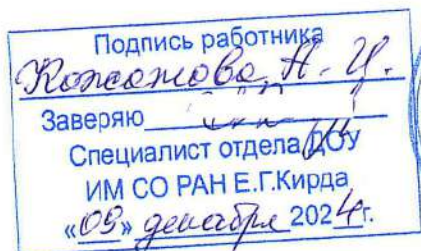 Подпись работника
Кожожова А. И.
Заверяю
Специалист отдела ДОУ
ИМ СО РАН Е.Г.Кирда
«09» декабря 2024г.